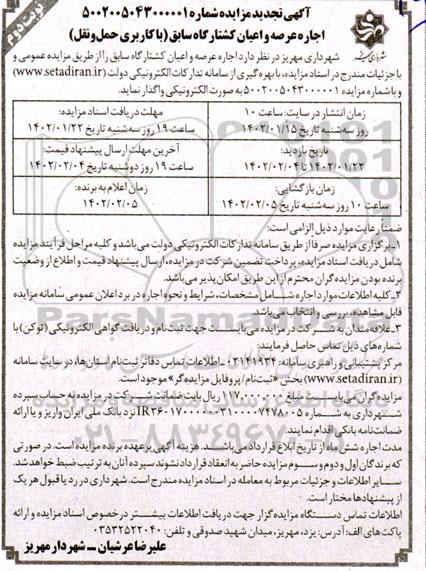 نوبت دوم
آگهی تجدید مزایده شماره ۵۰۰۲۰۰۵۰۴۳۰۰۰۰۰۱
اجاره عرصه و اعیان کشتارگاه سابق (با کاربری حمل و نقل)
شهرداری مهریز در نظر دارد اجاره عرصه و اعیان کشتارگاه سابق را از طریق مزایده عمومی و
با جزئیات مندرج در اسناد مزایده، با بهره گیری از سامانه تدارکات الکترونیکی دولت (www.setadiran.ir)
و با شماره مزایده ۵۰۰۲۰۰۵۰۴۳۰۰۰۰۰۱ به صورت الکترونیکی واگذار نماید.
زمان انتشار در سایت: ساعت ۱۰
روز سه‌شنبه تاریخ ۱۴۰۲/۰۱/۱۵
مهلت دریافت اسناد مزایده:
ساعت ۱۹ روز سه‌شنبه تاریخ ۱۴۰۲/۰۱/۲۲
تاریخ بازدید:
۱۴۰۲/۰۱/۲۲ تا ۱۴۰۲/۰۲/۰۴
آخرین مهلت ارسال پیشنهاد قیمت:
ساعت ۱۹ روز دوشنبه تاریخ ۱۴۰۲/۰۲/۰۴
زمان بازگشایی:
ساعت ۱۰ روز سه‌شنبه تاریخ ۱۴۰۲/۰۲/۰۵
زمان اعلام به برنده:
۱۴۰۲/۰۲/۰۵
ضمنا رعایت موارد ذیل الزامی است:
۱-برگزاری مزایده صرفا از طریق سامانه تدارکات الکترونیکی دولت می‌باشد و کلیه مراحل فرآیند مزایده
شامل دریافت اسناد مزایده، پرداخت تضمین شرکت در مزایده، ارسال پیشنهاد قیمت و اطلاع از وضعیت
برنده بودن مزایده گران محترم از این طریق امکان پذیر می‌باشد.
۲-کلیه اطلاعات موارد اجاره شامل مشخصات، شرایط و نحوه اجاره در برد اعلان عمومی سامانه مزایده
قابل مشاهده، بررسی و انتخاب می‌باشد.
۳-علاقه‌مندان به شرکت در مزایده می‌بایست جهت ثبت نام و دریافت گواهی الکترونیکی (توکن) با
شماره‌های ذیل تماس حاصل فرمایند:
مرکز پشتیبانی و راهبری سامانه: ۰۲۱۴۱۹۳۴ - اطلاعات تماس دفاتر ثبت‌نام استان‌ها، در سایت سامانه
(www.setadiran.ir) بخش «ثبت‌نام / پروفایل مزایده‌گر» موجود است.
مزایده گران می بایست مبلغ ۱۱۷٫۰۰۰٫۰۰۰ ریال بابت ضمانت شرکت در مزایده به حساب سپرده
شهرداری به شماره IR۳۶۰۱۷۰۰۰۰۰۰۳۱۰۰۰۰۷۴۷۸۰۰۵ نزد بانک ملی ایران واریز و یا ارائه
ضمانت‌نامه بانکی اقدام نمایند.
مدت اجاره شش ماه از تاریخ ابلاغ قرارداد می‌باشد. هزینه آگهی بر عهده برنده مزایده است. در صورتی
که برندگان اول و دوم و سوم مزایده حاضر به انعقاد قرارداد نشوند سپرده آنان به ترتیب ضبط خواهد شد.
سایر اطلاعات و جزئیات مربوط به معامله در اسناد مزایده مندرج است. شهرداری در رد یا قبول هر یک
از پیشنهادها مختار است.
اطلاعات تماس دستگاه مزایده گزار جهت دریافت اطلاعات بیشتر در خصوص اسناد مزایده و ارائه
پاکت‌های الف: آدرس: یزد، مهریز، میدان شهید صدوقی و تلفن: ۰۳۵۳۲۵۲۲۰۴۰
علیرضا عرشیان – شهردار مهریز